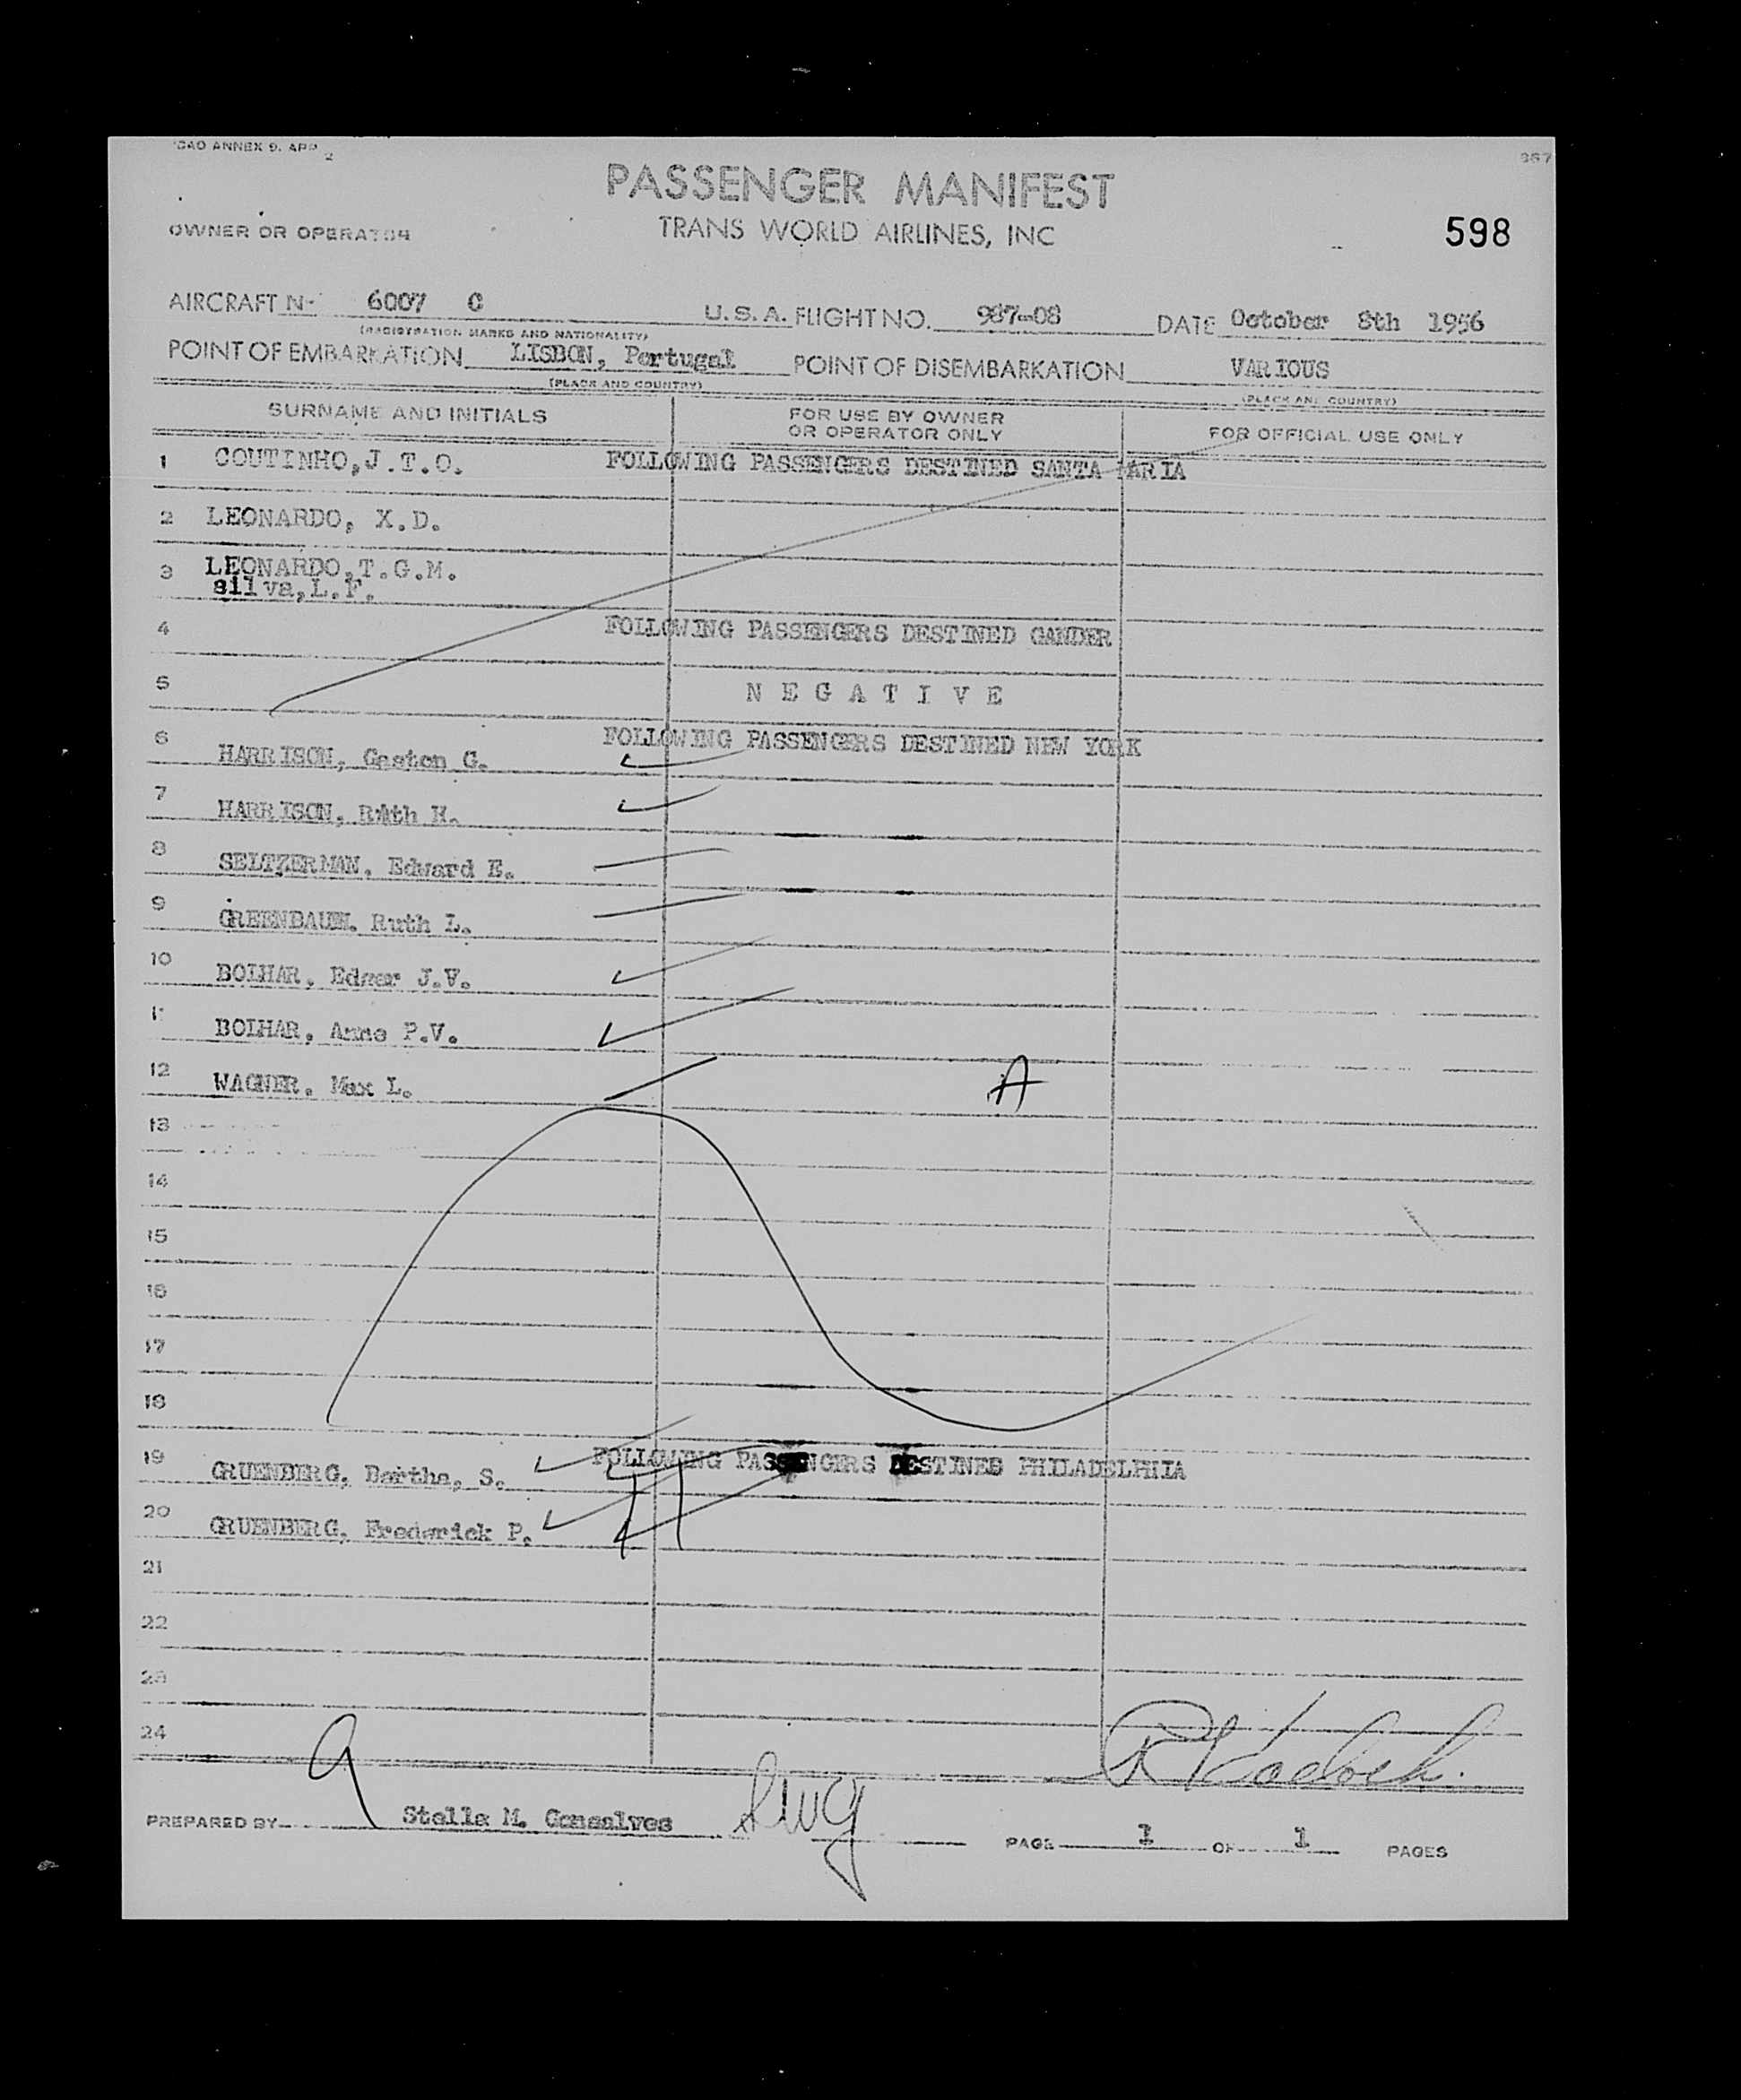 ICAO ANNEX 9. APP 2
367
PASSENGER MANIFEST
OWNER OR OPERATOR TRANS WORLD AIRLINES, INC 598
AIRCRAFT No 6007 C U. S. A. FLIGHT NO. 987-08 DATE October 8th 1956
(REGISTRATION MARKS AND NATIONALITY)
POINT OF EMBARKATION LISBON, Portugal POINT OF DISEMBARKATION VARIOUS
(PLACE AND COUNTRY) (PLACE AND COUNTRY)
SURNAME AND INITIALS FOR USE BY OWNER OR OPERATOR ONLY FOR OFFICIAL USE ONLY
1 COUTINHO,J.T.O. FOLLOWING PASSENGERS DESTINED SANTA MARIA
2 LEONARDO, X.D.
3 LEONARDO,T.G.M.
silva,L.F.
4 FOLLOWING PASSENGERS DESTINED GANDER
5 N E G A T I V E
6 HARRISON, Gaston G. FOLLOWING PASSENGERS DESTINED NEW YORK
7 HARRISON, Ruth H.
8 SELTZERMAN, Edward E.
9 GREENBAUM, Ruth L.
10 BOLHAR, Edgar J.V.
11 BOLHAR, Anne P.V.
12 WAGNER, Max L. A
13
14
15
16
17
18
19 GRUENBERG, Bertha, S. FOLLOWING PASSENGERS DESTINED PHILADELPHIA
20 GRUENBERG, Frederick P.
21
22
23
24
PREPARED BY Stella M. Gonsalves PAGE 1 OF 1 PAGES